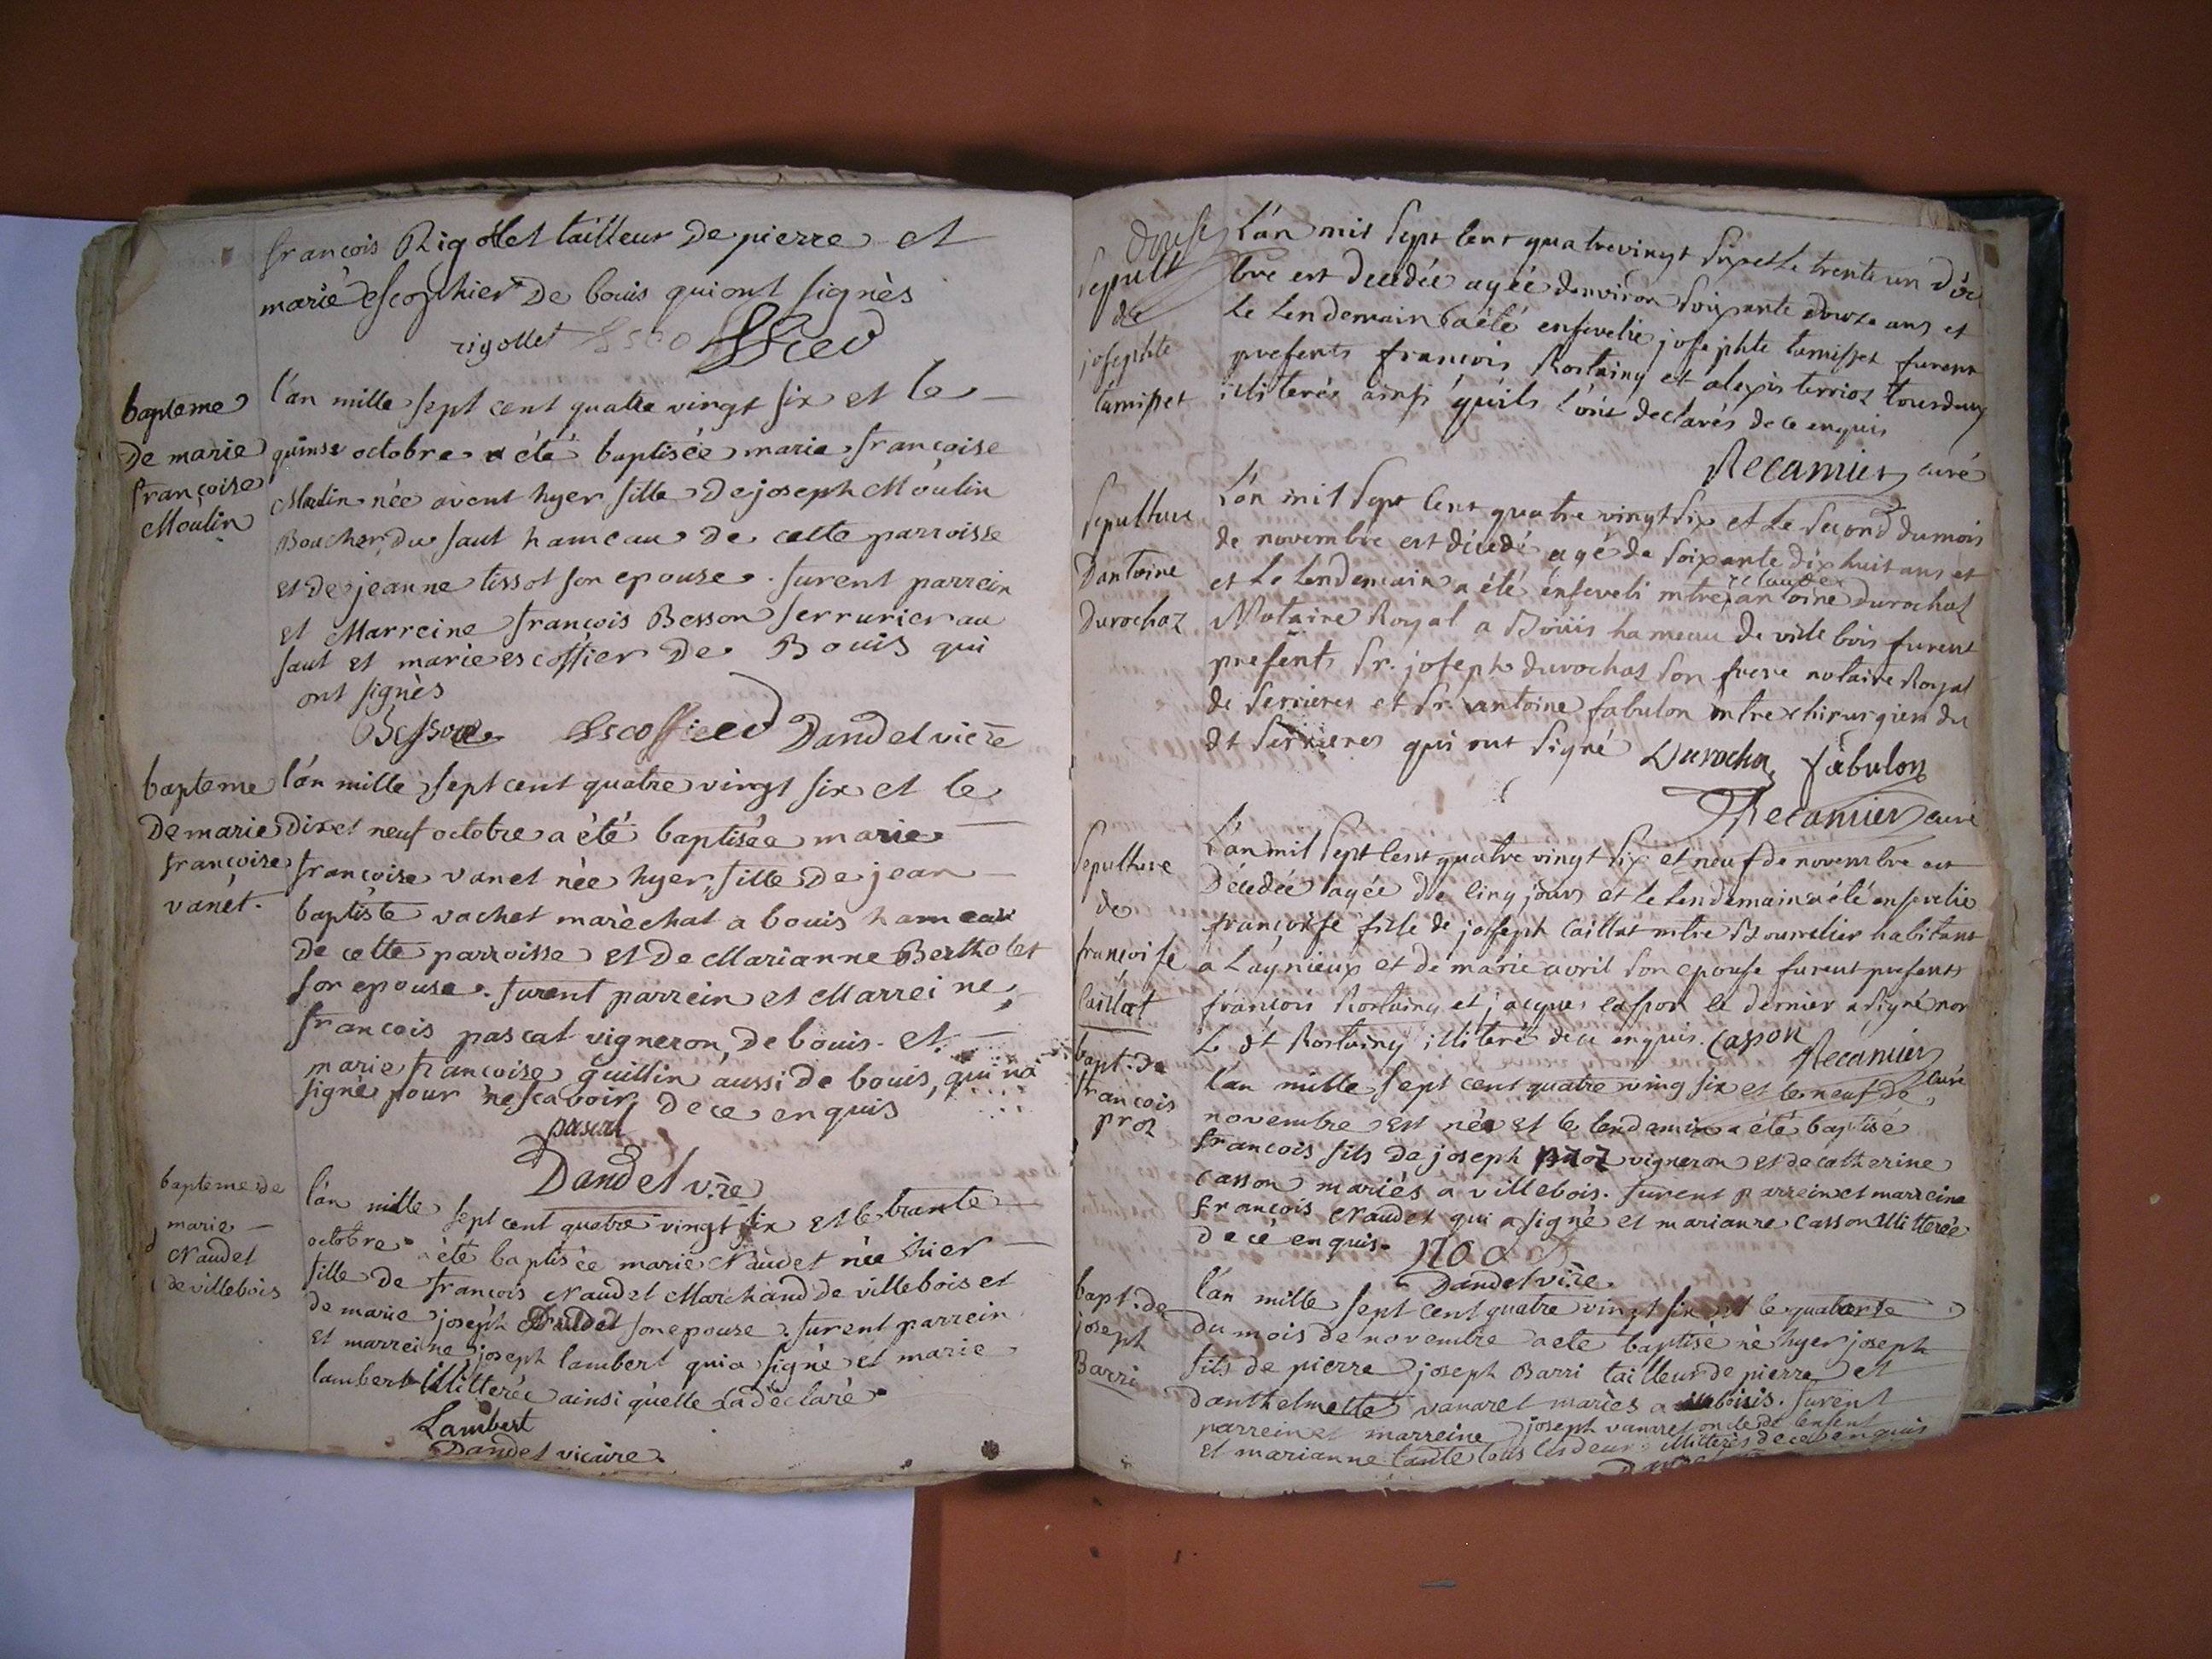 françois Rigollet tailleur De pierre et
marie escophier De bouis qui ont signès
rigollet
bapteme
De marie
françoise
Moulin
l'an mille sept cent quatre vingt six et le
quinse octobre a été baptisée marie françoise
Moulin née avent hyer fille De joseph Moulin
Boucher du saut hameau de cette parroisse
et de jeanne tissot son epouse. furent parrein
et Marreine françois Besson serrurier au
saut et marie escoffier De Bouis qui
ont signès
Besson Escoffier Dandel vicre
bapteme
De marie
françoise
vanet.
l'an mille sept cent quatre vingt six et le
dix et neuf octobre a été baptisée marie
françoise vanet née hyer, fille De jean
baptiste vachet maréchal a bouis hameau
de cette parroisse et De Marianne Bertholet
son epouse. furent parrein et Marreine,
françois pascal vigneron, De bouis. et
marie françoise guillin aussi de bouis, qui n'a
signé pour ne scavoir, de ce enquis
pascal
Dandel v.re
bapteme de
marie
Naudet
de villebois
l'an mille sept cent quatre vingt six et le trante
octobre a été baptisée marie Naudet née hier
fille De françois Naudet Marchand de villebois et
de marie joseph son epouse. furent parrein
et marreine, joseph lambert qui a signé et marie
lambert illitterée ainsi quelle la declaré.
Lambert
Dandel vicaire.
Sepult
de
josephte
tamisset
L'an mil sept cent quatre vingt six et le trente un d'oc
bre est decedée agée denviron soixante douze ans et
le lendemain a été ensevelie josephte tamisset furent
presents françois Rostaing et alexis terrioz tous deux
illiterés ainsi qu'ils l'ont declarés de ce enquis
Recamier curé
Sepulture
Dantoine
durochaz
L'an mil sept cent quatre vingt six et le second du mois
de novembre est décedé agé de soixante dix huit ans et
et le lendemain a été enseveli mtre claude antoine durochat
Notaire Royal a Boüis hameau de ville bois furent
presents Sr. joseph durochat son frere notaire Royal
de serrieres et Sr. antoine fabulon mtre chirurgien du
dt serrieres qui ont signé Durochaz fabulon
Recamier curé
Sepulture
de
françoise
caillat
L'an mil sept cent quatre vingt six et neuf de novembre est
Décedée agée de cinq jours et le lendemain a été ensevelie
françoise fille de joseph caillat mtre Bourrelier habitant
a Lagnieux et de marie avril son epouse furent presents
françois Rostaing et jacques casson le dernier a signé non
le dt Rostaing illiteré de ce enquis. Casson Recamier
curé
bapt. de
françois
proz
l'an mille sept cent quatre ving six et le neuf de
novembre est née et le lendemin a été baptisé
françois fils de joseph proz vigneron et de catherine
casson mariés a villebois. furent parrein et marreine
françois Naudet qui a signé et marianne casson illitterée
de ce enquis.
Dandel vi.re
bapt. de
joseph
Barri
l'an mille sept cent quatre vingt six et le quatorse
du mois de novembre a ete baptisé né hyer joseph
fils de pierre joseph Barri tailleur de pierre et
danthelmette vanarel mariés a bouis. furent
parrein et marreine joseph vanarel oncle de lenfent
et marianne tante tous les deux illitterés de ce enquis